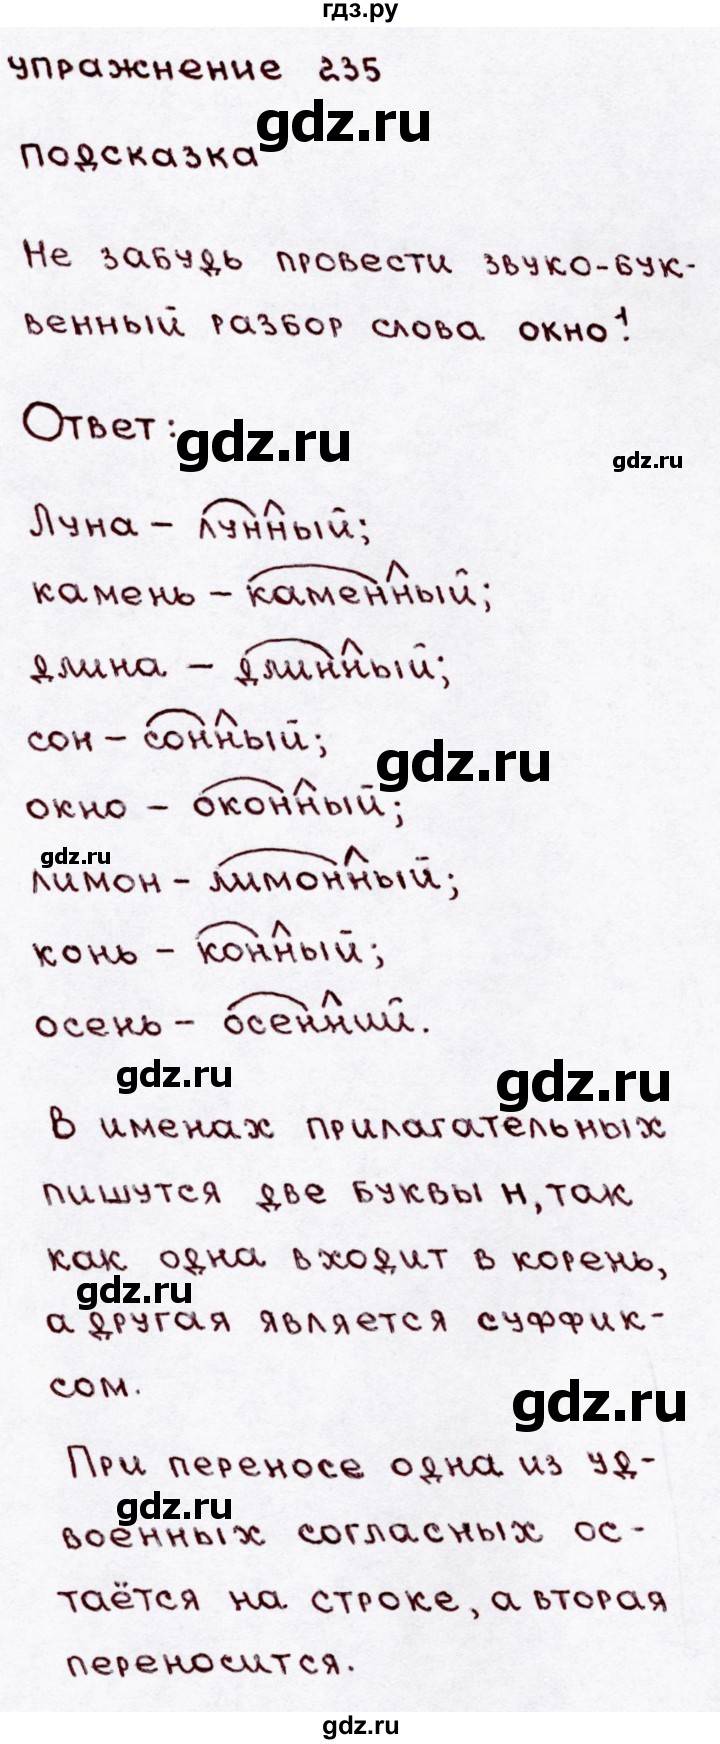 гдз.ру
упражнение 235
gdz.ru
подсказка
Не забудь провести звуко-бук-
венный разбор слова окно¹!
Ответ:
gdz.ru
gdz.ru
Луна - лунный;
камень - каменный;
длина - длинный;
сон - сонный;
gdz.ru
окно - оконный;
gdz.ru
лимон - лимонный;
конь - конный;
осень - осенний.
gdz.ru
gdz.ru
В именах прилагательных
пишутся две буквы н, так
как одна входит в корень,
gdz.ru
а другая является суффик-
сом.
gdz.ru
При переносе одна из уд-
gdz.ru
военных согласных ос-
таётся на строке, а вторая
переносится.
gdz.ru